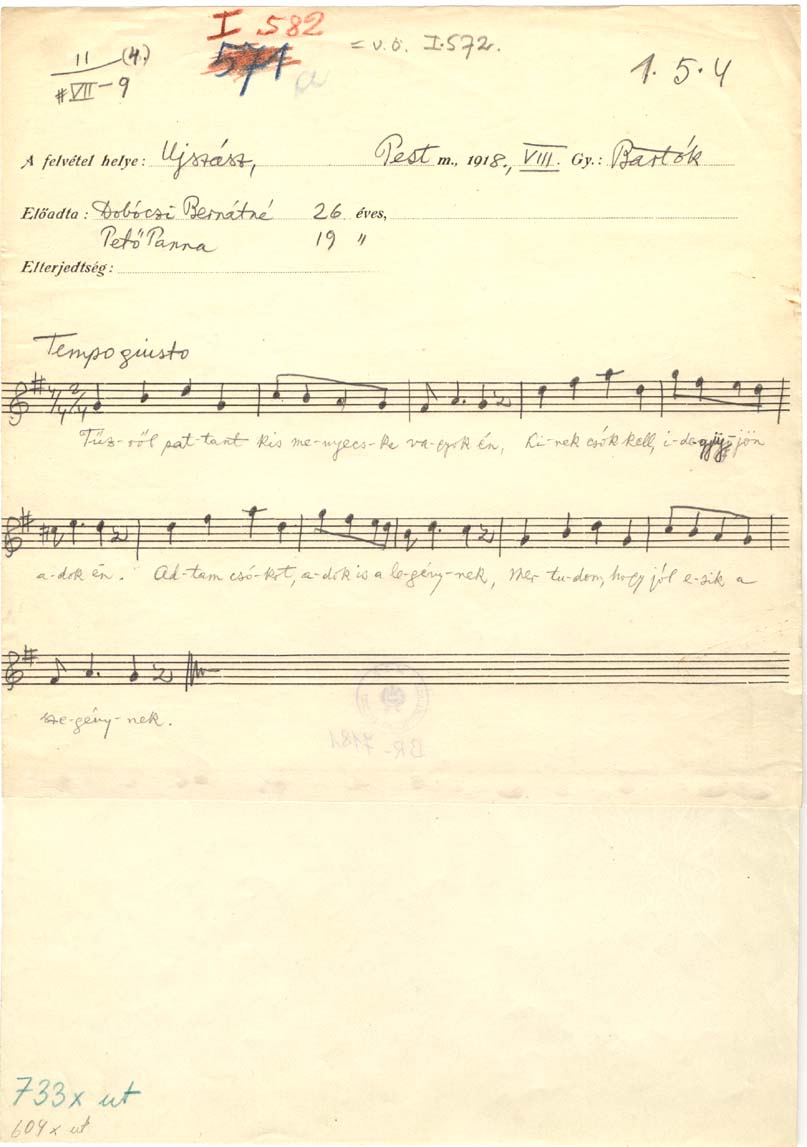 I. 582
571
= v.ö. I.572.
11 (4.)
#VII-9
1. 5. 4
A felvétel helye: Ujszász, Pest m., 1918., VIII. Gy.: Bartók
Előadta: Dobóczi Bernátné 26 éves,
Pető Panna 19 "
Elterjedtség:
Tempo giusto
4/4 2/4
Tűz-ről pat-tant kis me-nyecs-ke va-gyok én, Ki-nek csók kell, i-de gyüj-jön
a-dok én. Ad-tam csó-kot, a-dok is a le-gény-nek, Mer tu-dom, hogy jól e-sik a
sze-gény-nek.
BR-7181
733x ut
604x ut